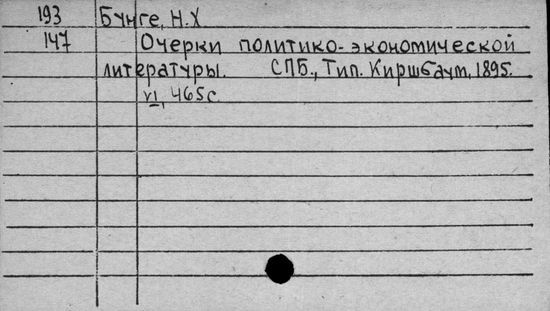 193 Бунге, Н.Х
147 Очерки политико-экономической
литературы. СПБ., Тип. Киршбаум, 1895.
VI, 465с.